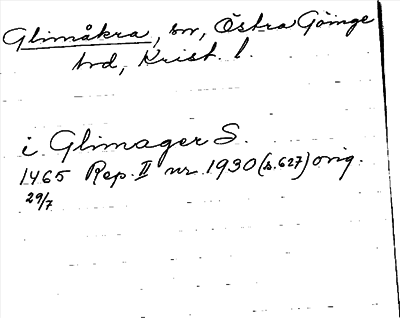 Glimåkra, sn, Östra Göinge
hrd, Krist. l.
i Glimager S.
1465 Rep. II nr 1930 (s. 627) orig.
29/7